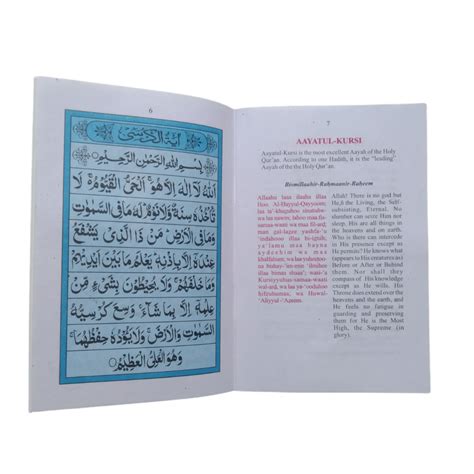 6
اٰيَةُ الْكُرْسِىْ
بِسْمِ اللهِ الرَّحْمٰنِ الرَّحِيْمِ
اَللهُ لَا اِلٰهَ اِلَّا هُوَ ۚ اَلْحَىُّ الْقَيُّوْمُ ۚ لَا
تَاْخُذُهٗ سِنَةٌ وَّلَا نَوْمٌ ؕ لَهٗ مَا فِى السَّمٰوٰتِ
وَمَا فِى الْاَرْضِ ؕ مَنْ ذَا الَّذِىْ يَشْفَعُ
عِنْدَهٗ اِلَّا بِاِذْنِهٖ ؕ يَعْلَمُ مَا بَيْنَ اَيْدِيْهِمْ
وَمَا خَلْفَهُمْ ۚ وَلَا يُحِيْطُوْنَ بِشَىْءٍ مِّنْ
عِلْمِهٖٓ اِلَّا بِمَا شَآءَ ۚ وَسِعَ كُرْسِيُّهُ
السَّمٰوٰتِ وَالْاَرْضَ ۚ وَلَا يَئُوْدُهٗ حِفْظُهُمَا ۚ
وَهُوَ الْعَلِىُّ الْعَظِيْمُ
7
AAYATUL-KURSI
Aayatul-Kursi is the most excellent Aayah of the Holy
Qur'an. According to one Hadith, it is the "leading"
Aayah of the the Holy Qur'an.
Bismillaahir-Rahmaanir-Raheem
Allaahu laaa ilaaha illaa
Huu. Al-Hayyul-Qayyoom;
laa
samaa-waati wa maa fil-ard;
man
Kursiyyuhus-samaa-waati
wal-ard, wa laa
hifzuhumaa, wa Huwal-
'Aliyyul-'Azeem.
Allah! There is no god but
He,ß the Living, the Self-
subsisting, Eternal. No
slumber can seize Him nor
sleep. His are all things in
the heavens and on earth.
Who is there can intercede
in His presence except as
He permits? He knows what
(appears to His creatures as)
Before or After or Behind
them. Nor shall they
compass of His knowledge
except as He wills. His
Throne does extend over the
heavens and the earth, and
He feels no fatigue in
guarding and preserving
them for He is the Most
High, the Supreme (in
glory).